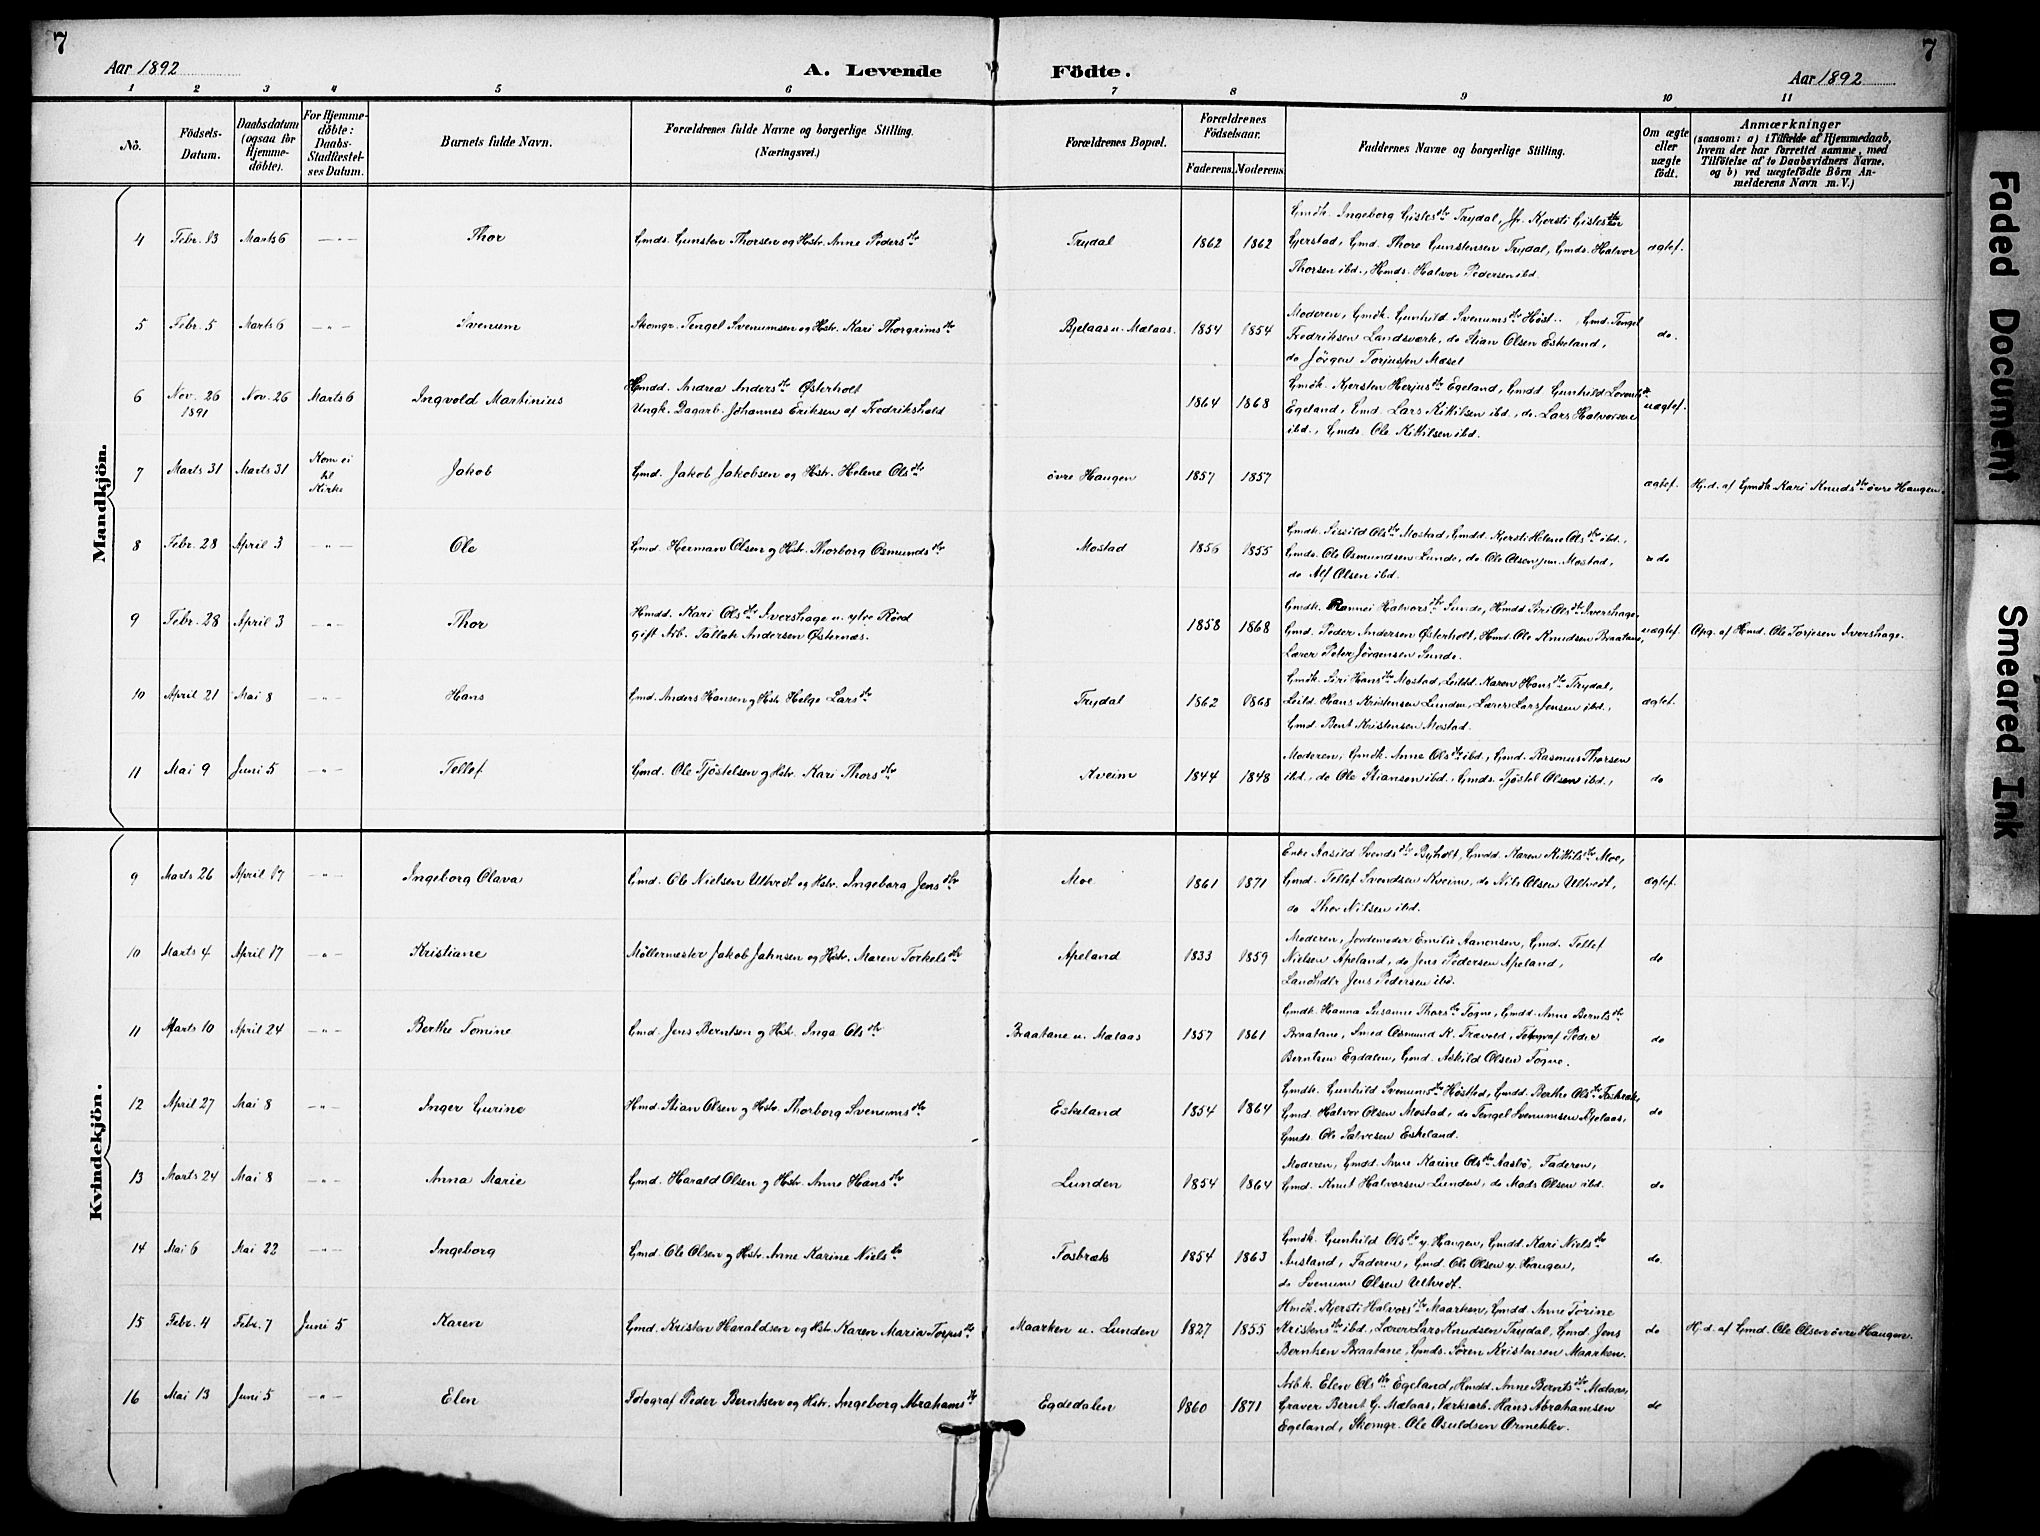 7
7
Aar 1892
A. Levende
Födte.
Aar 1892
1 2 3 4 5 6 7 8 9 10 11
Nö.
Födsels-Datum.
Daabsdatum (ogsaa for Hjemme-döbte).
For Hjemme-döbte: Daabs-Stadfestel-ses Datum.
Barnets fulde Navn.
Forældrenes fulde Navne og borgerlige Stilling. (Næringsvei.)
Forældrenes Bopæl.
Forældrenes Födselsaar.
Faderens. Moderens.
Faddernes Navne og borgerlige Stilling.
Om ægte eller uægte födt.
Anmærkninger
(saasom: a) i Tilfælde af Hjemmedaab,
hvem der har forrettet samme, med
Tilföielse af to Daabsvidners Navne,
og b) ved uægtefödte Börn An-
melderens Navn m. V.)
Mandkjön.
4 Febr. 13 Marts 6 —„— Thor Gmds. Gunsten Thorsen og Hstr. Anne Pedersdtr Trydal 1862 1862 ægtef.
Gmdk. Ingeborg Gislesdtr Trydal, Jfr. Kjersti Gislesdtr
Gjerstad, Gmd. Thore Gunstensen Trydal, Gmds. Halvor
Thorsen ibd., Hmds. Halvor Pedersen ibd.
5 Febr. 5 Marts 6 —„— Svenum Skomgr. Tengel Svenumsen og Hstr. Kari Thorgrimsdtr Bjelaas u. Mælaas. 1854 1854 do.
Moderen, Gmdk. Gunhild Svenumsdtr Høst.. , Gmd. Tengel
Fredriksen Landsværk, do Stian Olsen Eskeland,
do Jörgen Torjussen Mæsel
6 Nov. 26 1891 Nov. 26 Marts 6 Ingvold Martinius Hmdd. Andrea Andersdtr Østerholt
Ungk. Dagarb. Johannes Eriksen af Fredrikshald 1864 1868 uægtef.
Gmdk. Kjersten Herjusdtr Egeland, Gmdd Gunhild
Egeland, Gmd. Lars Kittilsen ibd., do. Lars Halvorsen
ibd., Gmds. Ole Kittilsen ibd.
7 Marts 31 Marts 31 Kom ei til Kirke Jakob Gmd. Jakob Jakobsen og Hstr. Helene Olsdtr övre Haugen 1857 1857 ægtef. Hjd. af Gmdk. Kari Knudsdtr övre Haugen.
8 Febr. 28 April 3 —„— Ole Gmd. Herman Olsen og Hstr. Thorborg Osmundsdtr Mostad 1856 1855 do
Gmdk. Sissild Olsdtr Mostad, Gmdd. Kjersti Helene Olsdtr ibd.,
Gmds. Ole Osmundsen Lunde, do Ole Olsen jun. Mostad,
do Alf Olsen ibd.
9 Febr. 28 April 3 —„— Thor Hmdd. Kari Olsdtr Ivershage u. ytre Röed
gift Arb. Tallak Andersen Østernæs. 1858 1868 uægtef. Opg. af Hmd. Ole Torjesen Ivershage.
Gmdk. Rannei Halvorsdtr Sunde, Hmdd Siri Olsdtr Ivershage,
Gmd. Peder Andersen Østerholt, Hmd. Ole Knudsen Braatane,
Lærer Peter Jörgensen Sunde.
10 April 21 Mai 8 —„— Hans Gmd. Anders Hansen og Hstr Helge Larsdtr Trydal 1862 1868 ægtef.
Gmdk. Siri Hansdtr Mostad, Leildd. Karen Hansdtr Trydal,
Leild. Hans Kristensen Lunden, Lærer Lars Jensen ibd.,
Gmd. Bent Kristensen Mostad.
11 Mai 9 Juni 5 —„— Tellef Gmd. Ole Tjöstelsen og Hstr. Kari Thorsdtr Kveim 1844 1848 do
Moderen, Gmdk. Anne Olsdtr ibd., Gmd. Rasmus Thorsen
ibd., do Ole Stiansen ibd., Gmds. Tjöstel Olsen ibd.,
Kvindekjön.
9 Marts 26 April 17 —„— Ingeborg Olava Gmd. Ole Nielsen Ultvedt og Hstr. Ingeborg Jensdtr Moe 1861 1871 ægtef.
Enke Aasild Svendsdtr Byholt, Gmdd. Karen Kittilsdtr Moe,
Gmd. Tellef Svendsen Kveim, do Nils Olsen Ultvedt,
do Thor Nilsen ibd.
10 Marts 4 April 17 —„— Kristiane Möllermester Jakob Jahnsen og Hstr. Maren Torkelsdtr Apeland 1833 1859 do
Moderen, Jordemoder Emilie Aanonsen, Gmd. Tellef
Nielsen Apeland, do Jens Pedersen Apeland,
Landhdlr Jens Pedersen ibd.
11 Marts 10 April 24 —„— Berthe Tomine Gmd. Jens Berntsen og Hstr. Inga Olsdtr Braatane u. Mælaas 1857 1861 do
Gmdk. Hanna Susanne Thorsdtr Togne, Gmdd. Anne Berntsdtr
Braatane, Smed Osmund K. Trævold, Fotograf Peder
Berntsen Egdalen, Gmd. Askild Olsen Togne.
12 April 27 Mai 8 —„— Inger Gurine Hmd. Stian Olsen og Hstr. Thorborg Svenumsdtr Eskeland 1854 1864 do
Gmdk. Gunhild Svenumsdtr Høsttad, Gmdd. Berthe Olsdtr Fosbræk,
Gmd. Halvor Olsen Mostad, do Tengel Svenumsen Bjelaas,
Gmds. Ole Salvesen Eskeland.
13 Marts 24 Mai 8 —„— Anna Marie Gmd. Harald Olsen og Hstr. Anne Hansdtr Lunden 1854 1864 do
Moderen, Gmdd. Anne Karine Olsdtr Aasbö, Faderen,
Gmd. Knut Halvorsen Lunden, do Mads Olsen ibd.
14 Mai 6 Mai 22 —„— Ingeborg Gmd. Ole Olsen og Hstr. Anne Karine Nielsdtr Fosbræk 1854 1863 do.
Gmdk. Gunhild Olsdtr y. Haugen, Gmdd. Kari Nielsdtr
Ausland, Faderen, Gmd. Ole Olsen y. Haugen,
do Svenum Olsen Ultvedt.
15 Febr. 4 Febr. 7 Juni 5 Karen Gmd. Kristen Haraldsen og Hstr. Karen Maria Torjusdtr Maarken u. Lunden 1827 1855 do Hjd. af Gmd. Ole Olsen övre Haugen.
Hmdk. Kjersti Halvorsdtr Maarken, Gmdd. Anne Torine
Kristensdtr ibd., Lærer Lars Knudsen Trydal, Gmd. Jens
Berntsen Braatane, Gmds. Sören Kristensen Maarken.
16 Mai 13 Juni 5 —„— Elen Fotograf Peder Berntsen og Hstr. Ingeborg Abrahamsdtr Egdedalen 1860 1871 do
Arb.k. Elen Olsdtr Egeland, Hmdd. Anne Berntsdtr Mælaas,
Graver Bernt G. Mælaas, Værksarb. Hans Abrahamsen
Egeland, Skomgr. Ole Osuldsen Ormeklev.
Faded Document
Smeared Ink